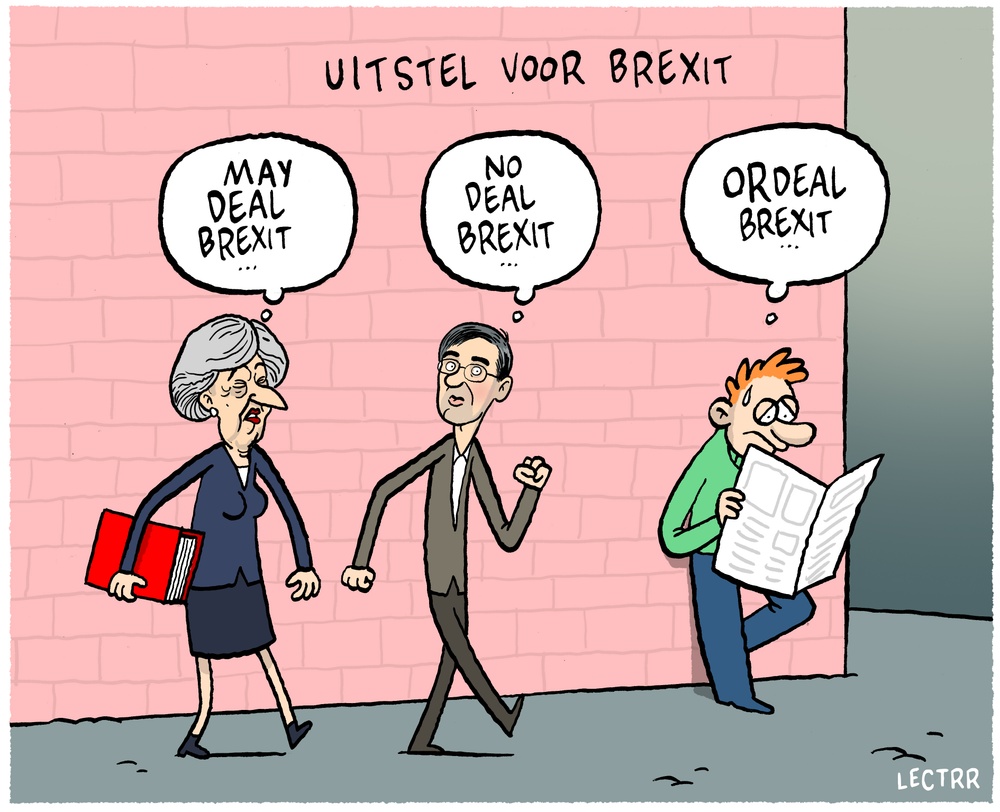 UITSTEL VOOR BREXIT
MAY
DEAL
BREXIT
...
NO
DEAL
BREXIT
...
ORDEAL
BREXIT
...
LECTRR